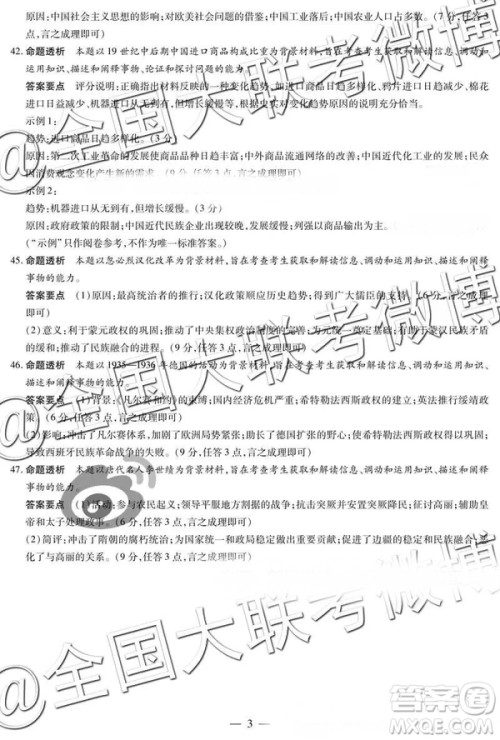 原因:中国社会主义思想的影响;对欧美社会问题的借鉴;中国工业落后;中国农业人口占多数。(9分,任答3点,言之成理即可)
42.命题透析 本题以19世纪中后期中国进口商品构成比重为材料,旨在考查考生获取和解读信息、调动和
运用知识、描述和阐释事物、论证和探讨问题的能力。
答案要点 评分说明:正确指出材料反映的一种变化趋势,如进口商品日趋多样化、鸦片进口日趋减少、棉花
进口日益减少、机器进口从无到有,但增长缓慢等;结合史实说明变化趋势出现的原因,史实充分恰当
示例1:
趋势:进口商品日趋多样化。(3分)
原因:第二次工业革命的发展使商品品种日趋丰富;中外商品流通网络的改善;中国近代化工业的发展;民众
因消费观念变化产生新的需求。(9分)
示例2:
趋势:机器进口从无到有,但增长缓慢。(3分)
原因:政府政策的限制;中国近代民族企业出现较晚,发展缓慢;列强以商品输出为主。(9分)
(“示例”只作阅卷参考,不作为唯一标准答案。)
45.命题透析 本题以忽必烈汉化改革为背景材料,旨在考查考生获取和解读信息、调动和运用知识、描述和阐释
事物的能力。
答案要点 (1)原因:最高统治者的推行;汉化政策顺应历史趋势;得到了广大儒臣的支持。(6分,任答2点,言
之成理即可)
(2)意义:利于蒙元政权的巩固;推动了中央集权政治制度的发展;一定程度上缓和了社会矛盾和民族矛盾的
缓和;推动了民族融合的进程。(9分,任答3点,言之成理即可)
46.命题透析 本题以1935—1936年德国的活动为背景材料,旨在考查考生获取和解读信息、调动和运用知识、
描述和阐释事物的能力。
答案要点 (1)背景:《凡尔赛和约》的束缚;国内经济危机严重;希特勒法西斯政权的建立;英法推行绥靖政
策。(6分,任答3点,言之成理即可)
(2)影响:冲击了凡尔赛体系;加剧了欧洲局势紧张;助长了德国扩张的野心;使希特勒法西斯政权得以巩固;
导致西班牙民族革命战争的失败。(9分,任答3点,言之成理即可)
47.命题透析 本题以唐代名人李世绩为背景材料,旨在考查考生获取和解读信息、调动和运用知识、描述和阐释
事物的能力。
答案要点 (1)活动:参与农民起义;领导平服地方割据的战争;抗击突厥并安置突厥降民;征讨高丽;辅助皇
帝和太子处理政事。(6分,任答3点,言之成理即可)
(2)简评:冲击了隋朝的腐朽统治;为国家统一和政权巩固作出贡献;促进了边疆的稳定和民族融合;恶
化了与高丽的关系。(9分,任答3点,言之成理即可)
@全国大联考微博
@全国大联考微博
@全国大联考微博
— 3 —
答案圈
MXQE.COM